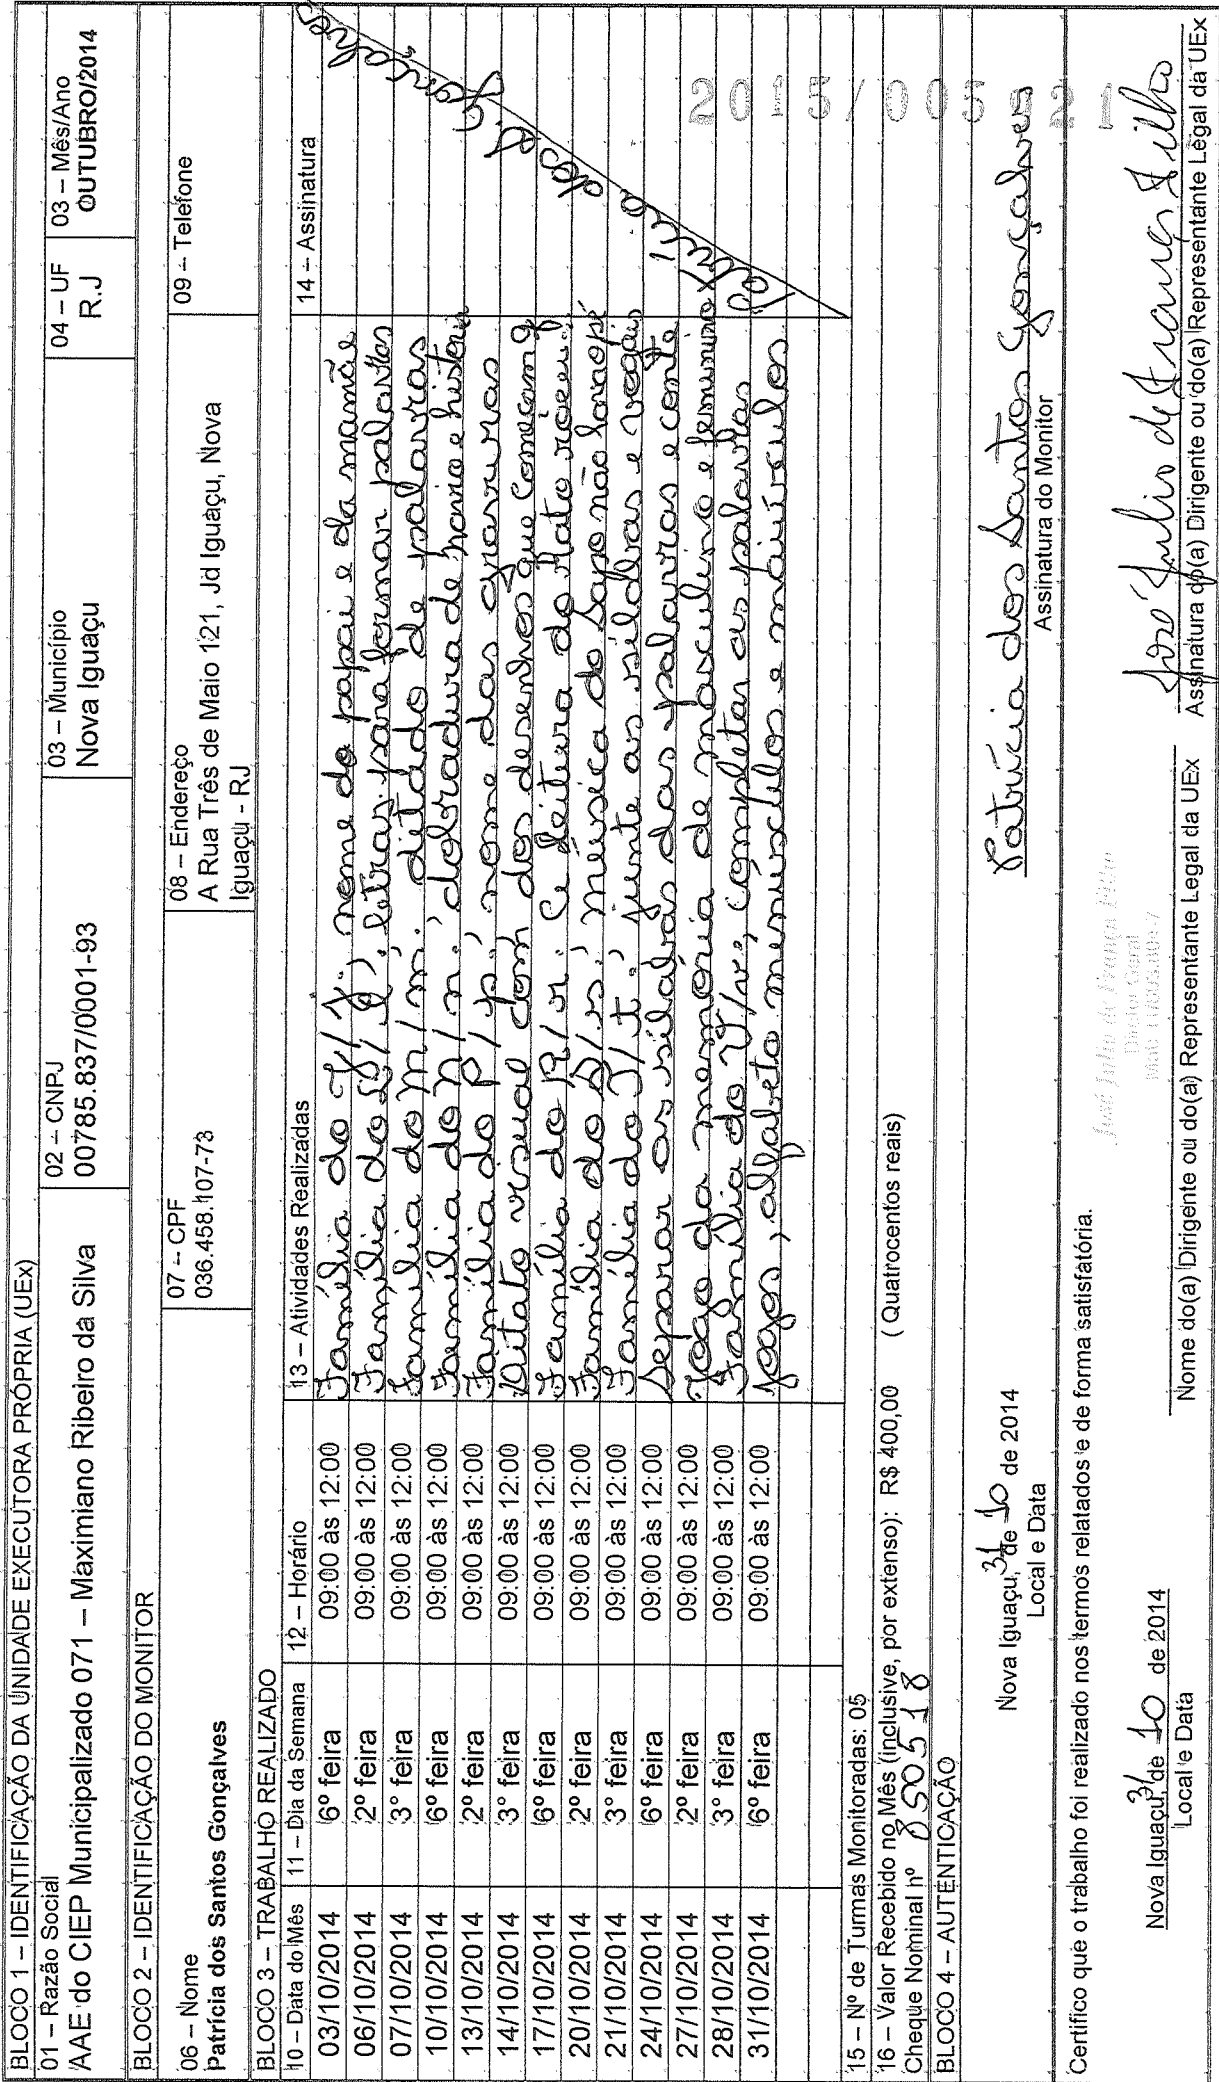 BLOCO 1 – IDENTIFICAÇÃO DA UNIDADE EXECUTORA PRÓPRIA (UEx)
01 – Razão Social
AAE do CIEP Municipalizado 071 – Maximiano Ribeiro da Silva
02 – CNPJ
00785.837/0001-93
03 – Município
Nova Iguaçu
04 – UF
R.J
03 – Mês/Ano
OUTUBRO/2014
BLOCO 2 – IDENTIFICAÇÃO DO MONITOR
06 – Nome
Patrícia dos Santos Gonçalves
07 – CPF
036.458.107-73
08 – Endereço
A Rua Três de Maio 121, Jd Iguaçu, Nova
Iguaçu - RJ
09 – Telefone
BLOCO 3 – TRABALHO REALIZADO
10 – Data do Mês 11 – Dia da Semana 12 – Horário 13 – Atividades Realizadas 14 – Assinatura
03/10/2014 6º feira 09:00 às 12:00 Família do nome do papai e da mamãe
06/10/2014 2º feira 09:00 às 12:00 Família do letras para formar palavras
07/10/2014 3º feira 09:00 às 12:00 Família do M/m. ditado de palavras
10/10/2014 6º feira 09:00 às 12:00 Família do N/n, dobradura de navio e história
13/10/2014 2º feira 09:00 às 12:00 Família do P/p, nome das gravuras
14/10/2014 3º feira 09:00 às 12:00 Ditato visual com dos desenhos que começam
17/10/2014 6º feira 09:00 às 12:00 Família do R/r. leitura do Rato
20/10/2014 2º feira 09:00 às 12:00 Família do S/s, música do Sapo não lava o pé
21/10/2014 3º feira 09:00 às 12:00 Família do T/t, junte as sílabas e vogais
24/10/2014 6º feira 09:00 às 12:00 Separar as sílabas das palavras e conte
27/10/2014 2º feira 09:00 às 12:00 Jogo da memória de masculino e feminino
28/10/2014 3º feira 09:00 às 12:00 Família do V/v, completar as palavras
31/10/2014 6º feira 09:00 às 12:00 Jogos, alfabeto minúsculos e maiúsculos
Patrícia dos S. Gonçalves
15 – Nº de Turmas Monitoradas: 05
16 – Valor Recebido no Mês (inclusive, por extenso): R$ 400,00 ( Quatrocentos reais)
Cheque Nominal nº 850518
2015/005921
BLOCO 4 – AUTENTICAÇÃO
Nova Iguaçu, 31 de 10 de 2014
Local e Data
Patrícia dos Santos Gonçalves
Assinatura do Monitor
Certifico que o trabalho foi realizado nos termos relatados e de forma satisfatória.
José Julio de França Filho
Diretor Geral
Nova Iguaçu, 31 de 10 de 2014
Local e Data
Nome do(a) Dirigente ou do(a) Representante Legal da UEx
José Julio de França Filho
Assinatura do(a) Dirigente ou do(a) Representante Legal da UEx